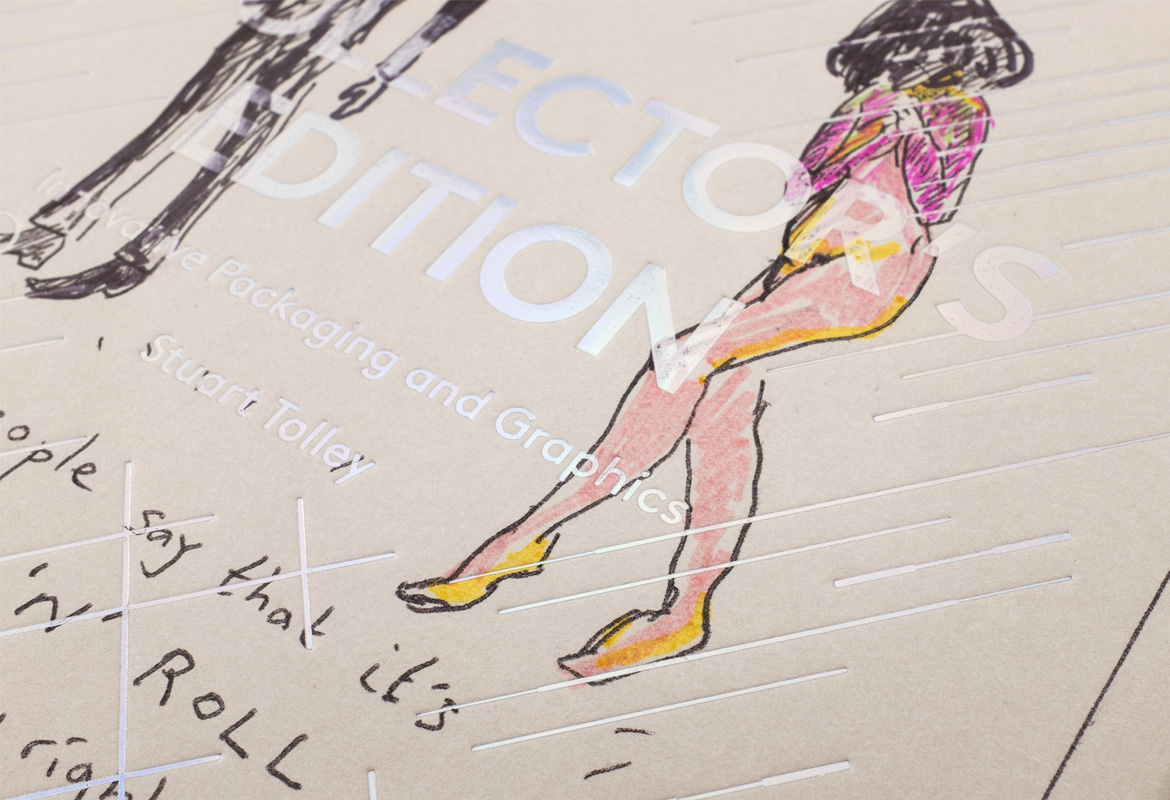 LLECTOR'S
EDITION
Innovative Packaging and Graphics
Stuart Tolley
ople
say that it's
in
ROLL
right